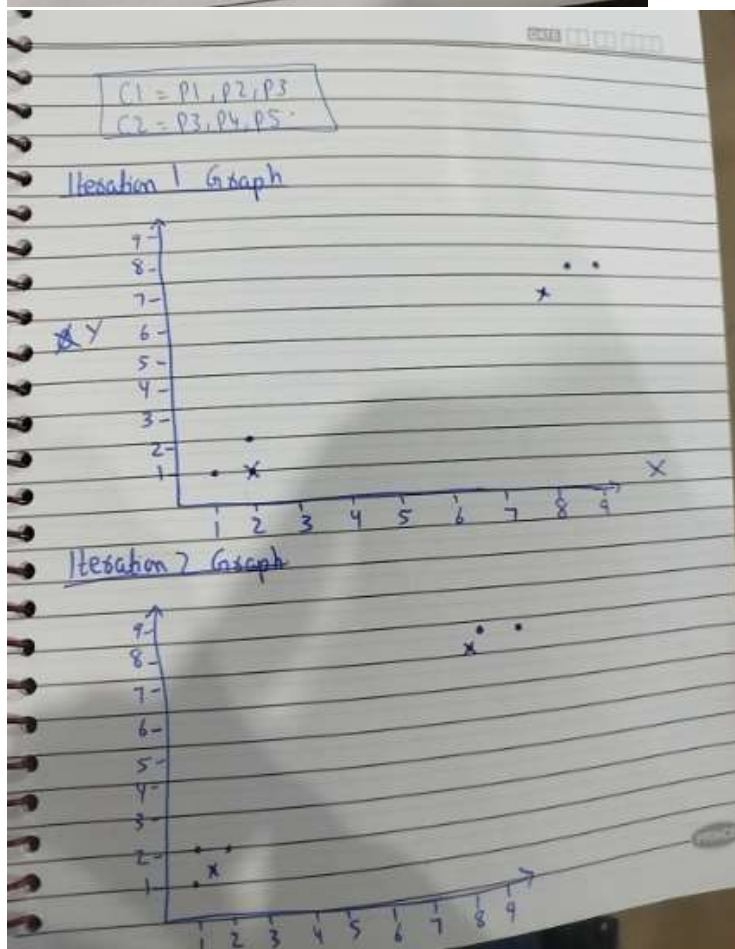 DATE
C1 = P1, P2, P3
C2 = P3, P4, P5.
Iteration 1 Graph
9
8
7
Y 6
5
4
3
2
1
X
1 2 3 4 5 6 7 8 9
Iteration 2 Graph
9
8
7
6
5
4
3
2
1
1 2 3 4 5 6 7 8 9